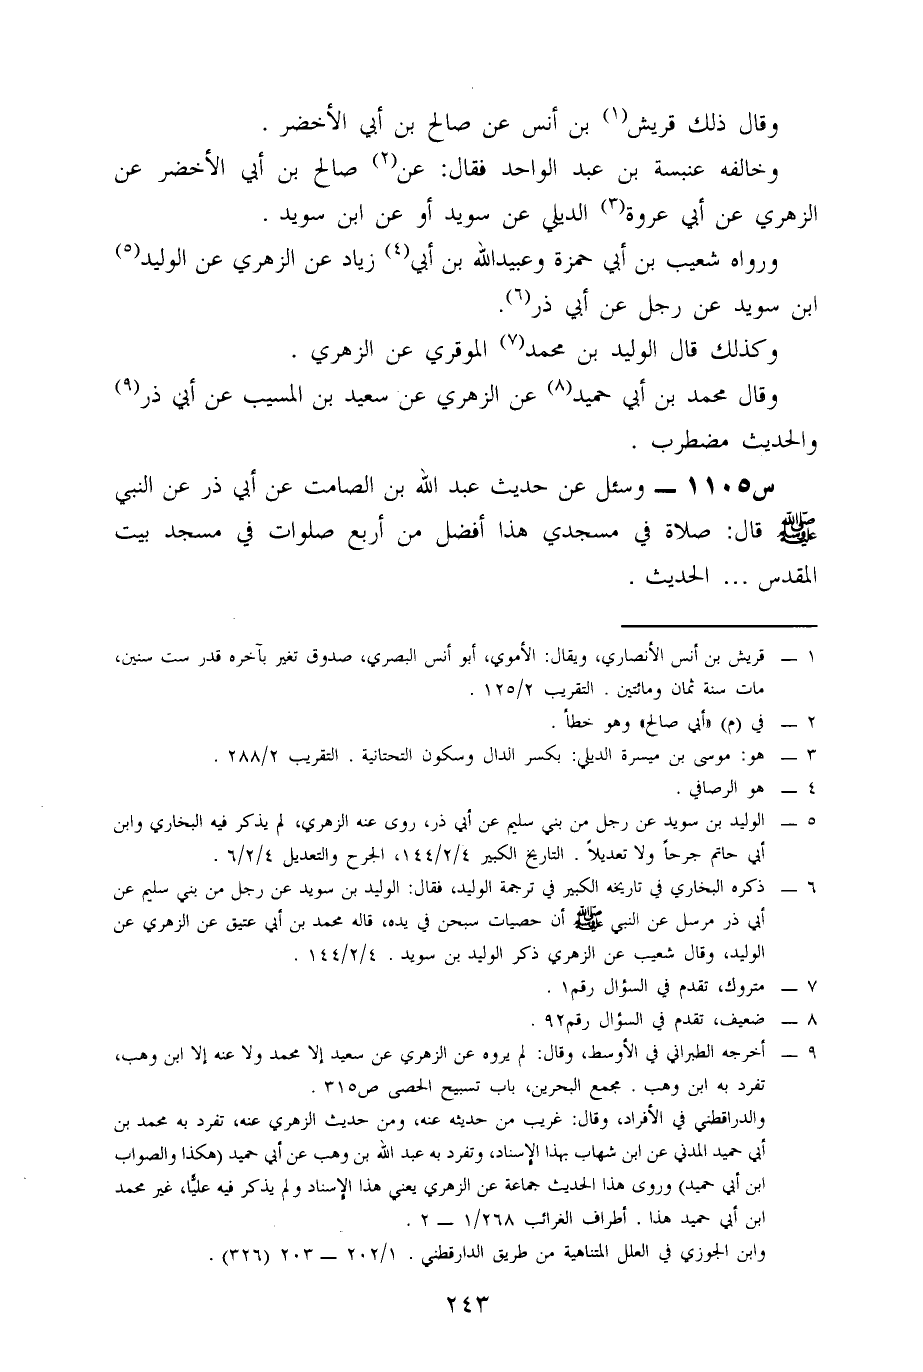 وقال ذلك قريش(١) بن أنس عن صالح بن أبي الأخضر .
وخالفه عنبسة بن عبد الواحد فقال: عن(٢) صالح بن أبي الأخضر عن
الزهري عن أبي عروة(٣) الديلي عن سويد أو عن ابن سويد .
ورواه شعيب بن أبي حمزة وعبيدالله بن أبي(٤) زياد عن الزهري عن الوليد(٥)
ابن سويد عن رجل عن أبي ذر(٦).
وكذلك قال الوليد بن محمد(٧) الموقري عن الزهري .
وقال محمد بن أبي حميد(٨) عن الزهري عن سعيد بن المسيب عن أبي ذر(٩)
والحديث مضطرب .
س١١٠٥ ــ وسئل عن حديث عبد الله بن الصامت عن أبي ذر عن النبي
ﷺ قال: صلاة في مسجدي هذا أفضل من أربع صلوات في مسجد بيت
المقدس ... الحديث .
١ ــ قريش بن أنس الأنصاري، ويقال: الأموي، أبو أنس البصري، صدوق تغير بآخره قدر ست سنين،
مات سنة ثمان ومائتين . التقريب ١٢٥/٢ .
٢ ــ في (م) «أبي صالح» وهو خطأ .
٣ ــ هو: موسى بن ميسرة الديلي: بكسر الدال وسكون التحتانية . التقريب ٢٨٨/٢ .
٤ ــ هو الرصافي .
٥ ــ الوليد بن سويد عن رجل من بني سليم عن أبي ذر، روى عنه الزهري، لم يذكر فيه البخاري وابن
أبي حاتم جرحاً ولا تعديلاً . التاريخ الكبير ١٤٤/٢/٤، الجرح والتعديل ٦/٢/٤ .
٦ ــ ذكره البخاري في تاريخه الكبير في ترجمة الوليد، فقال: الوليد بن سويد عن رجل من بني سليم عن
أبي ذر مرسل عن النبي ﷺ أن حصيات سبحن في يده، قاله محمد بن أبي عتيق عن الزهري عن
الوليد، وقال شعيب عن الزهري ذكر الوليد بن سويد . ١٤٤/٢/٤ .
٧ ــ متروك، تقدم في السؤال رقم١ .
٨ ــ ضعيف، تقدم في السؤال رقم٩٢ .
٩ ــ أخرجه الطبراني في الأوسط، وقال: لم يروه عن الزهري عن سعيد إلا محمد ولا عنه إلا ابن وهب،
تفرد به ابن وهب . مجمع البحرين، باب تسبيح الحصى ص٣١٥ .
والدراقطني في الأفراد، وقال: غريب من حديثه عنه، ومن حديث الزهري عنه، تفرد به محمد بن
أبي حميد المدني عن ابن شهاب بهذا الإسناد، وتفرد به عبد الله بن وهب عن أبي حميد (هكذا والصواب
ابن أبي حميد) وروى هذا الحديث جماعة عن الزهري يعني هذا الإسناد ولم يذكر فيه عليًّا، غير محمد
ابن أبي حميد هذا . أطراف الغرائب ١/٢٦٨ ــ ٢ .
وابن الجوزي في العلل المتناهية من طريق الدارقطني . ٢٠٢/١ ــ ٢٠٣ (٣٢٦) .
٢٤٣